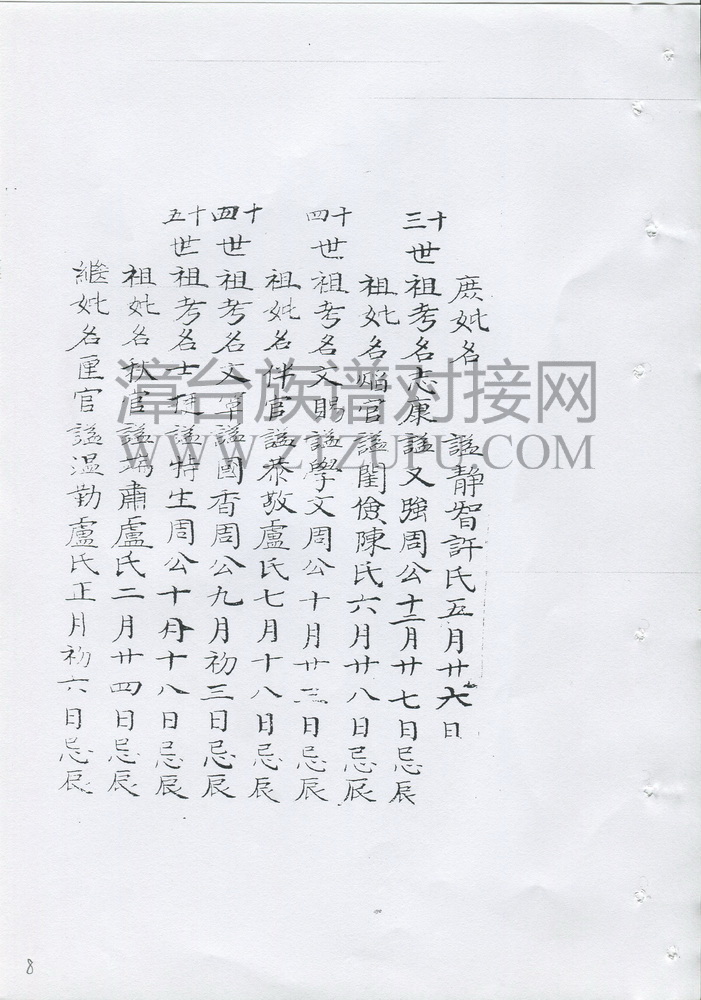 庶妣名 諡靜智許氏五月廿六日
十三世祖考名志康諡又強周公十二月廿七日忌辰
祖妣名 官諡閨儉陳氏六月廿八日忌辰
十四世祖考名文賜諡學文周公十月廿三日忌辰
祖妣名伴官諡恭敬盧氏七月十八日忌辰
十四世祖考名文 諡國香周公九月初三日忌辰
十五世祖考名士 諡特生周公十月十八日忌辰
祖妣名秋官諡 肅盧氏二月廿四日忌辰
繼妣名匣官諡溫勤盧氏正月初六日忌辰
漳台族谱对接网
WWW.ZTZUPU.COM
8